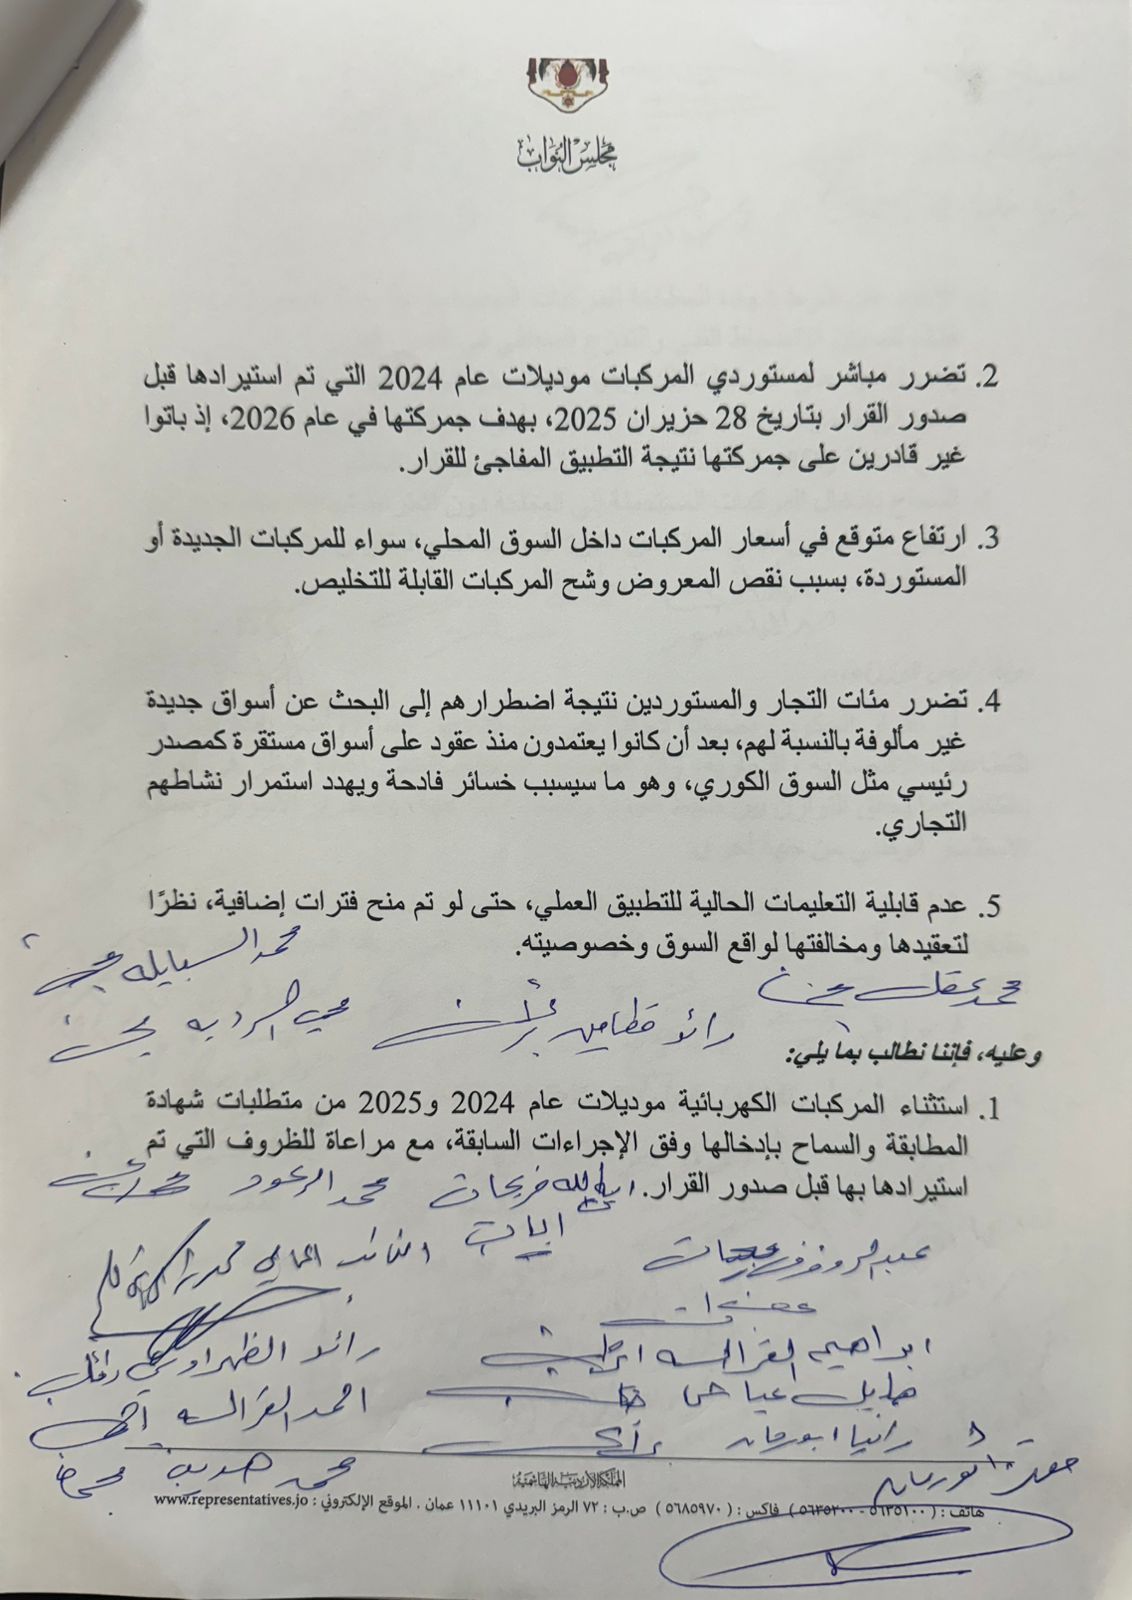 مجلس النواب
2. تضرر مباشر لمستوردي المركبات موديلات عام 2024 التي تم استيرادها قبل
صدور القرار بتاريخ 28 حزيران 2025، بهدف جمركتها في عام 2026، إذ باتوا
غير قادرين على جمركتها نتيجة التطبيق المفاجئ للقرار.
3. ارتفاع متوقع في أسعار المركبات داخل السوق المحلي، سواء للمركبات الجديدة أو
المستوردة، بسبب نقص المعروض وشح المركبات القابلة للتخليص.
4. تضرر مئات التجار والمستوردين نتيجة اضطرارهم إلى البحث عن أسواق جديدة
غير مألوفة بالنسبة لهم، بعد أن كانوا يعتمدون منذ عقود على أسواق مستقرة كمصدر
رئيسي مثل السوق الكوري، وهو ما سيسبب خسائر فادحة ويهدد استمرار نشاطهم
التجاري.
5. عدم قابلية التعليمات الحالية للتطبيق العملي، حتى لو تم منح فترات إضافية، نظرًا
لتعقيدها ومخالفتها لواقع السوق وخصوصيته.
محمد السبايله
محمد عقل
رائد قطامين
وعليه، فإننا نطالب بما يلي:
1. استثناء المركبات الكهربائية موديلات عام 2024 و2025 من متطلبات شهادة
المطابقة والسماح بإدخالها وفق الإجراءات السابقة، مع مراعاة للظروف التي تم
استيرادها بها قبل صدور القرار.
فريحات محمد الرعود
ابراهيم القرالسه
رائد الظهراوي
هايل عياش
احمد القرالسه
رانيا ابورمان
محمد هديب
المملكة الأردنية الهاشمية
هاتف : ( ٥٦٣٥١٠٠ - ٥٦٣٥٢٠٠ ) فاكس : ( ٥٦٨٥٩٧٠ ) ص.ب : ٧٢ الرمز البريدي ١١١٠١ عمان . الموقع الإلكتروني : www.representatives.jo